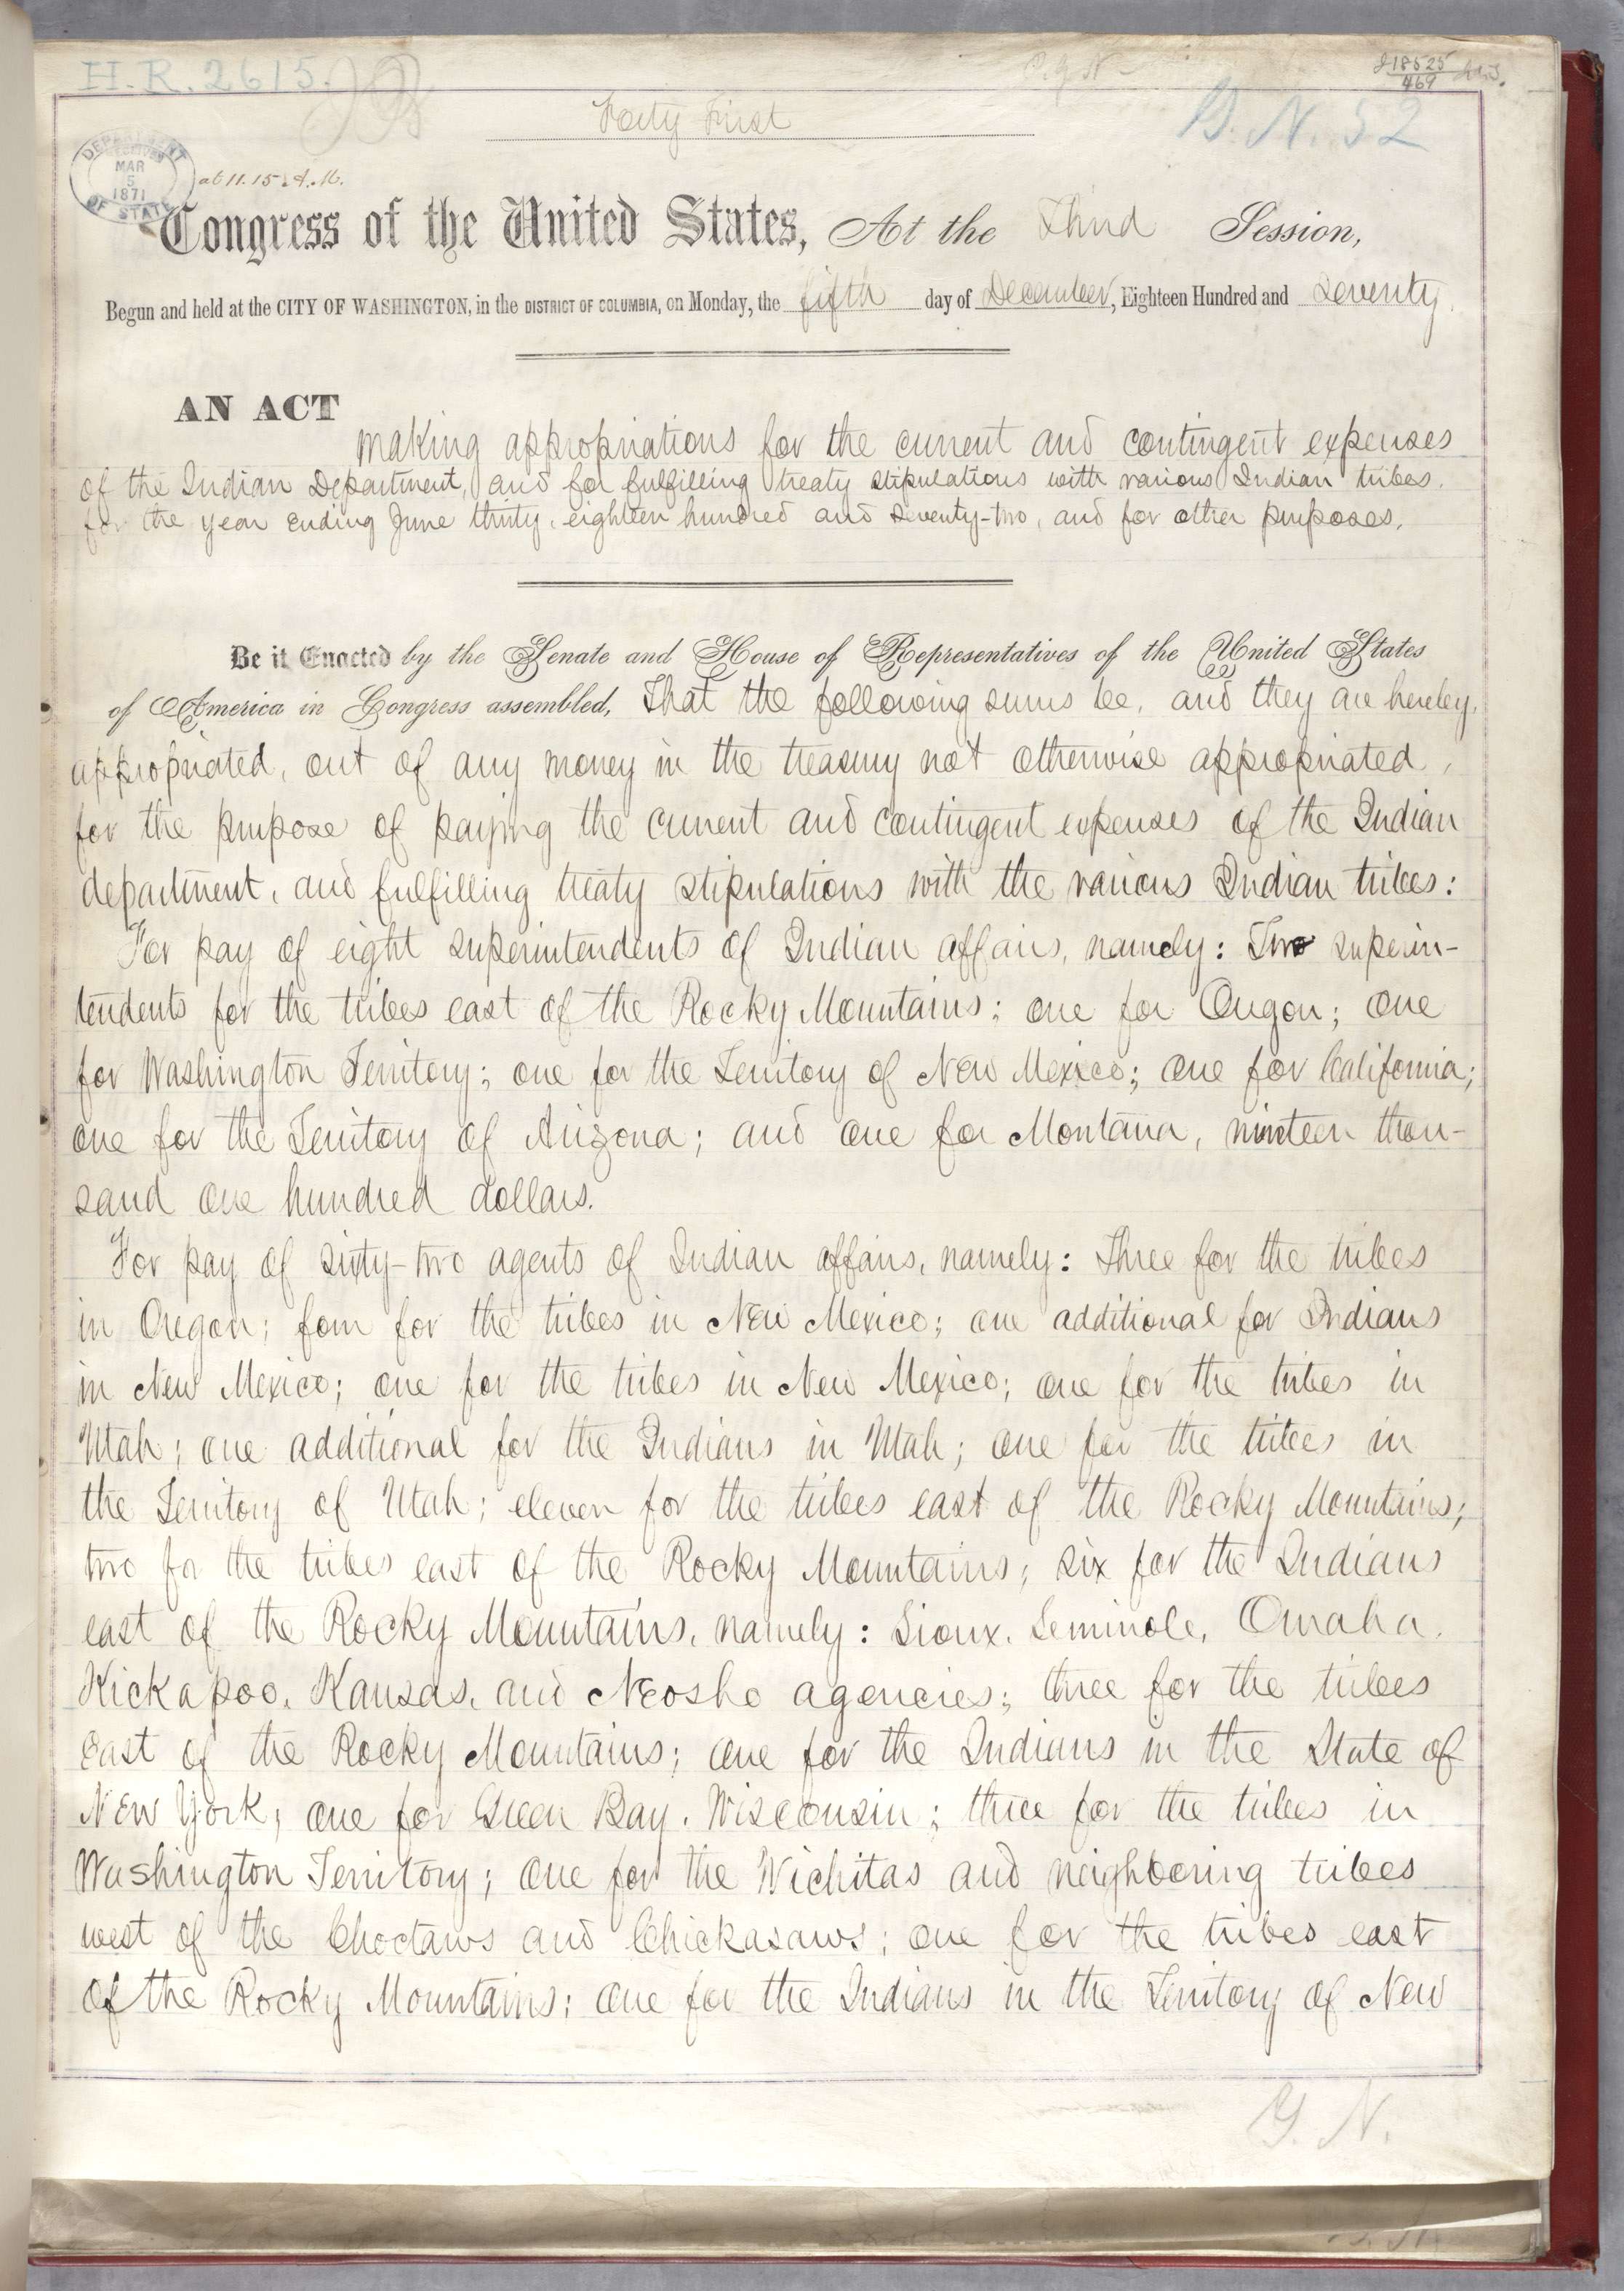 H.R. 2615.
218525
469
Forty First
G. N. 52
DEPARTMENT
MAR
5
1871
OF STATE
at 11.15 A.M.
Congress of the United States, At the Third Session,
Begun and held at the CITY OF WASHINGTON, in the DISTRICT OF COLUMBIA, on Monday, the fifth day of December, Eighteen Hundred and Seventy.
AN ACT
making appropriations for the current and contingent expenses
of the Indian Department, and for fulfilling treaty stipulations with various Indian tribes,
for the year ending June thirty, eighteen hundred and seventy-two, and for other purposes.
Be it Enacted by the Senate and House of Representatives of the United States
of America in Congress assembled, That the following sums be, and they are hereby,
appropriated, out of any money in the treasury not otherwise appropriated,
for the purpose of paying the current and contingent expenses of the Indian
department, and fulfilling treaty stipulations with the various Indian tribes:
For pay of eight superintendents of Indian affairs, namely: Two superin-
tendents for the tribes east of the Rocky Mountains; one for Oregon; one
for Washington Territory; one for the Territory of New Mexico; one for California;
one for the Territory of Arizona; and one for Montana, nineteen thou-
sand one hundred dollars.
For pay of sixty-two agents of Indian affairs, namely: Three for the tribes
in Oregon; four for the tribes in New Mexico; one additional for Indians
in New Mexico; one for the tribes in New Mexico; one for the tribes in
Utah; one additional for the Indians in Utah; one for the tribes in
the Territory of Utah; eleven for the tribes east of the Rocky Mountains;
two for the tribes east of the Rocky Mountains; six for the Indians
east of the Rocky Mountains, namely: Sioux, Seminole, Omaha,
Kickapoo, Kansas, and Neosho agencies; three for the tribes
east of the Rocky Mountains; one for the Indians in the State of
New York; one for Green Bay, Wisconsin; three for the tribes in
Washington Territory; one for the Wichitas and neighboring tribes
west of the Choctaws and Chickasaws; one for the tribes east
of the Rocky Mountains; one for the Indians in the Territory of New
G. N.